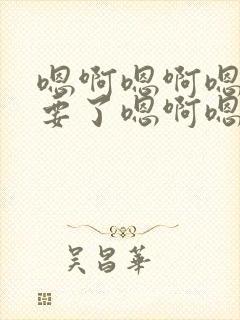 嗯啊嗯啊嗯
要了嗯啊嗯
吴昌華